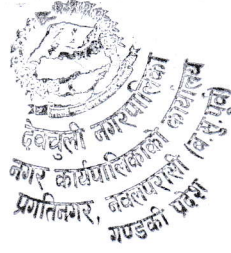 देवचुली नगरपालिका
नगर कार्यपालिकाको कार्यालय
प्रगतिनगर, नवलपरासी (ब.सु.पूर्व)
गण्डकी प्रदेश